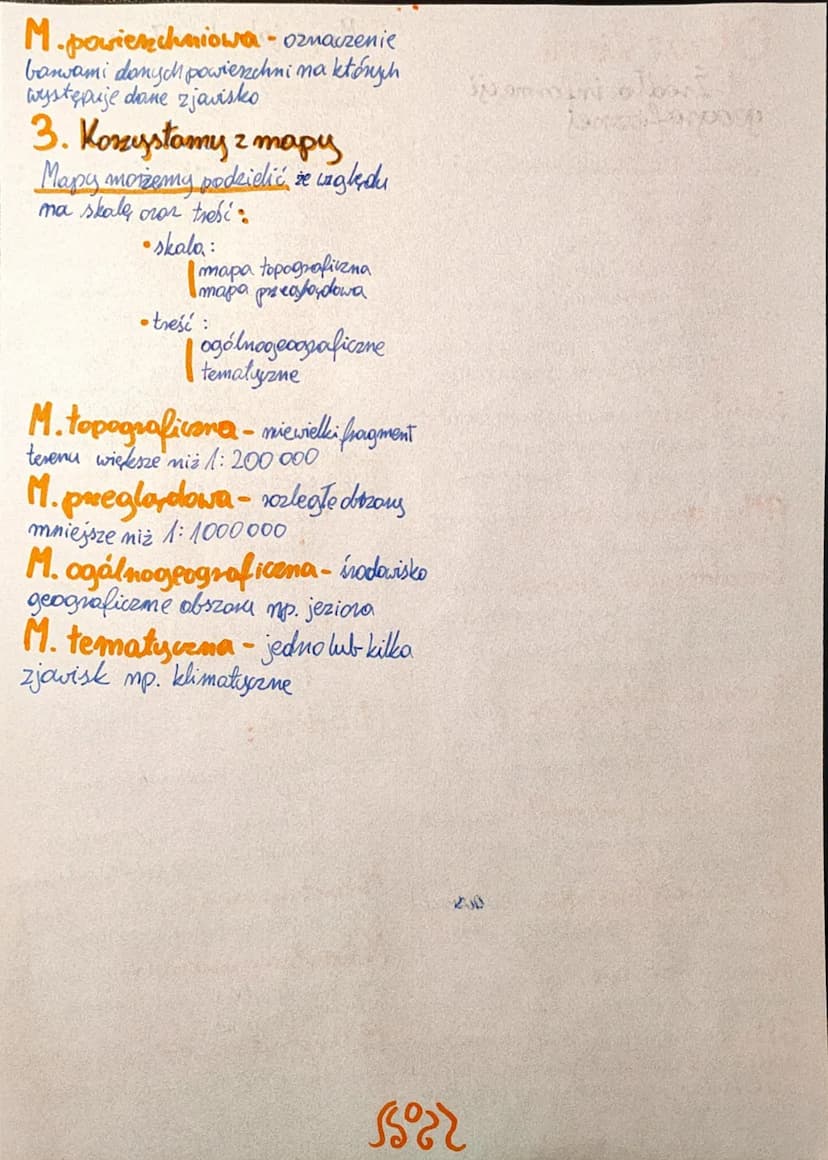 M. powierzchniowa - oznaczenie
barwami danych powierzchni na których
występuje dane zjawisko
3. Korzystamy z mapy
Mapy możemy podzielić ze względu
na skalę oraz treść:
• skala:
mapa topograficzna
mapa przeglądowa
• treść:
ogólnogeograficzne
tematyczne
M. topograficzna - niewielki fragment
terenu większe niż 1:200 000
M. przeglądowa - rozległe obszary
mniejsze niż 1:1000 000
M. ogólnogeograficzna - środowisko
geograficzne obszaru np. jeziora
M. tematyczna - jedno lub kilka
zjawisk np. klimatyczne